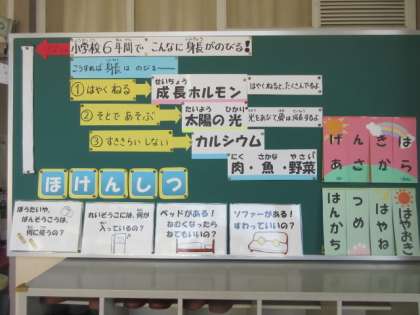 小学校6年間で、こんなに身長がのびる!
こうすれば身長はのびる
①はやくねる
せいちょう
成長ホルモン
はやくねると、たくさんでるよ
②そとであそぶ
たいよう ひかり
太陽の光
③すききらいしない
カルシウム
にく さかな やさい
肉・魚・野菜
ほけんしつ
ほうたいや、
ばんそうこうは、
何に使うの?
れいぞうこには、何が
入っているの?
ベッドがある!
ねむくなったら
ねてもいいの?
ソファーがある!
すわっていいの?
はやおき
はやね
つめ
はんかち